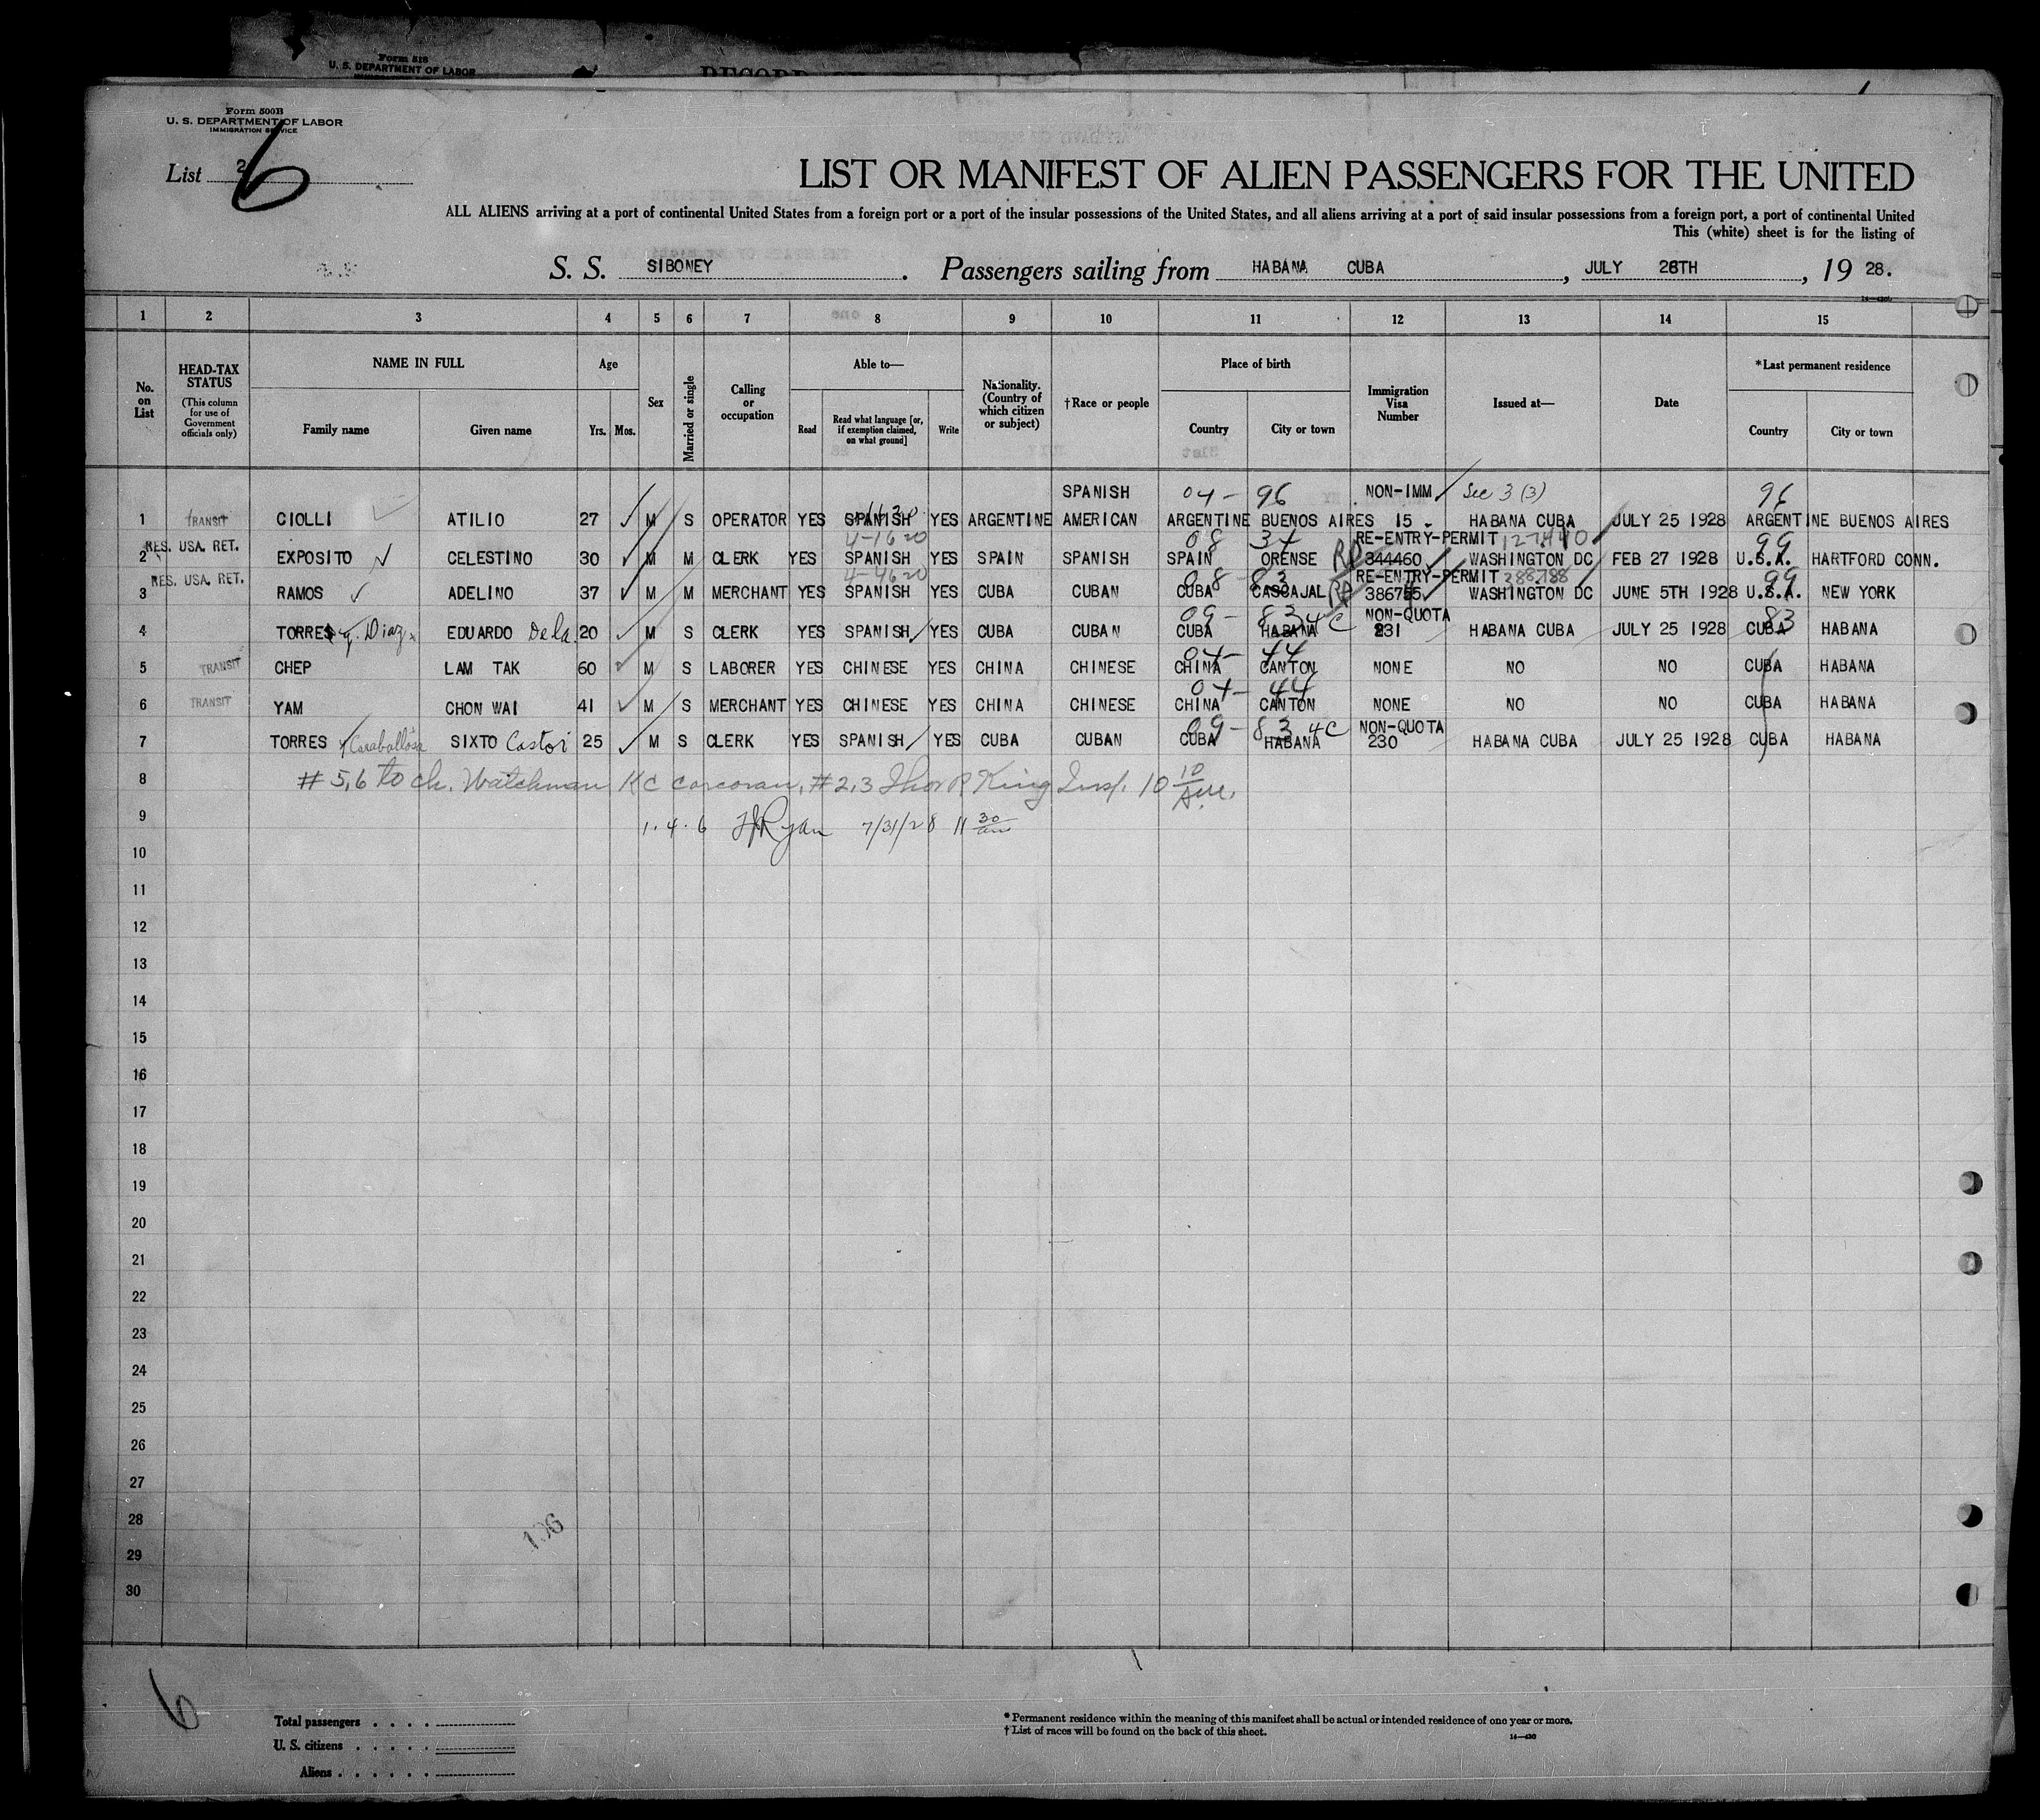 Form 518
U. S. DEPARTMENT OF LABOR
Form 500B
U. S. DEPARTMENT OF LABOR
IMMIGRATION SERVICE
List 2
6
LIST OR MANIFEST OF ALIEN PASSENGERS FOR THE UNITED
ALL ALIENS arriving at a port of continental United States from a foreign port or a port of the insular possessions of the United States, and all aliens arriving at a port of said insular possessions from a foreign port, a port of continental United
This (white) sheet is for the listing of
S. S. SIBONEY . Passengers sailing from HABANA CUBA , JULY 28TH , 19 28.
1 2 3 4 5 6 7 8 9 10 11 12 13 14 15
No. on List
HEAD-TAX STATUS (This column for use of Government officials only)
NAME IN FULL
Family name Given name
Age
Yrs. Mos.
Sex
Married or single
Calling or occupation
Able to—
Read Read what language [or, if exemption claimed, on what ground] Write
Nationality. (Country of which citizen or subject)
†Race or people
Place of birth
Country City or town
Immigration Visa Number
Issued at—
Date
*Last permanent residence
Country City or town
SPANISH 04- 96 NON-IMM Sec 3 (3) 96
1 TRANSIT CIOLLI ATILIO 27 M S OPERATOR YES SPANISH YES ARGENTINE AMERICAN ARGENTINE BUENOS AIRES 15 HABANA CUBA JULY 25 1928 ARGENTINE BUENOS AIRES
4-1620 08 34 RE-ENTRY-PERMIT 127440 99
2 RES. USA. RET. EXPOSITO CELESTINO 30 M M CLERK YES SPANISH YES SPAIN SPANISH SPAIN ORENSE RP 344460 WASHINGTON DC FEB 27 1928 U.S.A. HARTFORD CONN.
4-4620 08 83 RE-ENTRY-PERMIT 288788 99
3 RES. USA. RET. RAMOS ADELINO 37 M M MERCHANT YES SPANISH YES CUBA CUBAN CUBA CASCAJAL RP 386755 WASHINGTON DC JUNE 5TH 1928 U.S.A. NEW YORK
09- 83 4C NON-QUOTA 83
4 TORRES y Diaz EDUARDO De la 20 M S CLERK YES SPANISH YES CUBA CUBAN CUBA HABANA 231 HABANA CUBA JULY 25 1928 CUBA HABANA
04- 44
5 TRANSIT CHEP LAM TAK 60 M S LABORER YES CHINESE YES CHINA CHINESE CHINA CANTON NONE NO NO CUBA HABANA
04- 44
6 TRANSIT YAM CHON WAI 41 M S MERCHANT YES CHINESE YES CHINA CHINESE CHINA CANTON NONE NO NO CUBA HABANA
09- 83 4C NON-QUOTA
7 TORRES y Caraballosa SIXTO Castor 25 M S CLERK YES SPANISH YES CUBA CUBAN CUBA HABANA 230 HABANA CUBA JULY 25 1928 CUBA HABANA
8 # 5,6 to ch. Watchman KC Corcoran, # 2,3 Thos P King Insp. 10 10 AM.
9 1. 4. 6 Ryan 7/31/28 11 30 am
10
11
12
13
14
15
16
17
18
19
20
21
22
23
24
25
26
27
28
29
30
196
6
Total passengers . . . .
U. S. citizens . . . . .
Aliens . . . . . .
* Permanent residence within the meaning of this manifest shall be actual or intended residence of one year or more.
† List of races will be found on the back of this sheet.
14—430